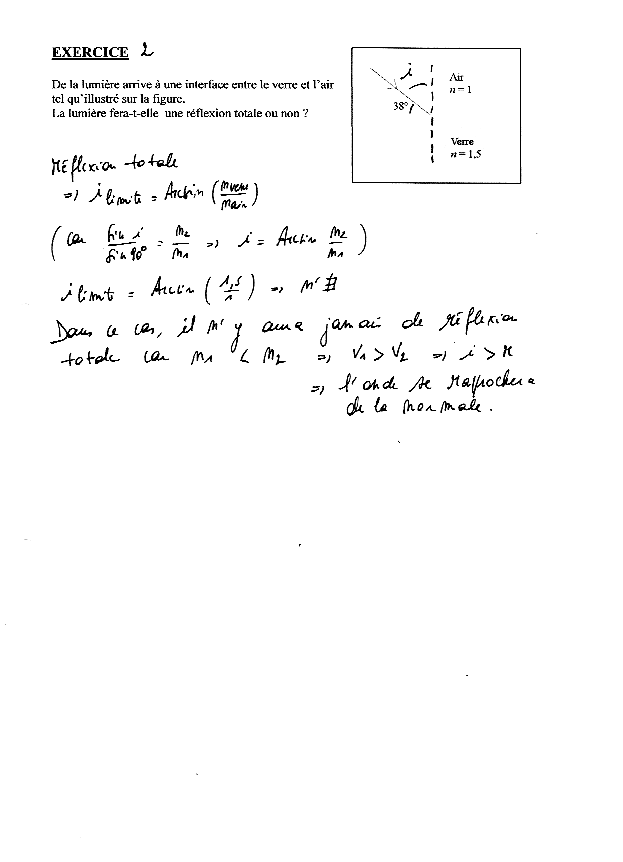 EXERCICE 2
De la lumière arrive à une interface entre le verre et l'air
tel qu'illustré sur la figure.
La lumière fera-t-elle une réflexion totale ou non ?
i
Air
n = 1
38°
Verre
n = 1,5
Réflexion totale
=> i limite = Arcsin (n verre / n air)
(car sin i / sin 90° = n2 / n1 => i = Arcsin n2 / n1)
i limit = Arcsin (1,5 / 1) => n' ∄
Dans ce cas, il n'y aura jamais de réflexion
totale car n1 < n2 => V1 > V2 => i > r
=> l'onde se rapprochera
de la normale.